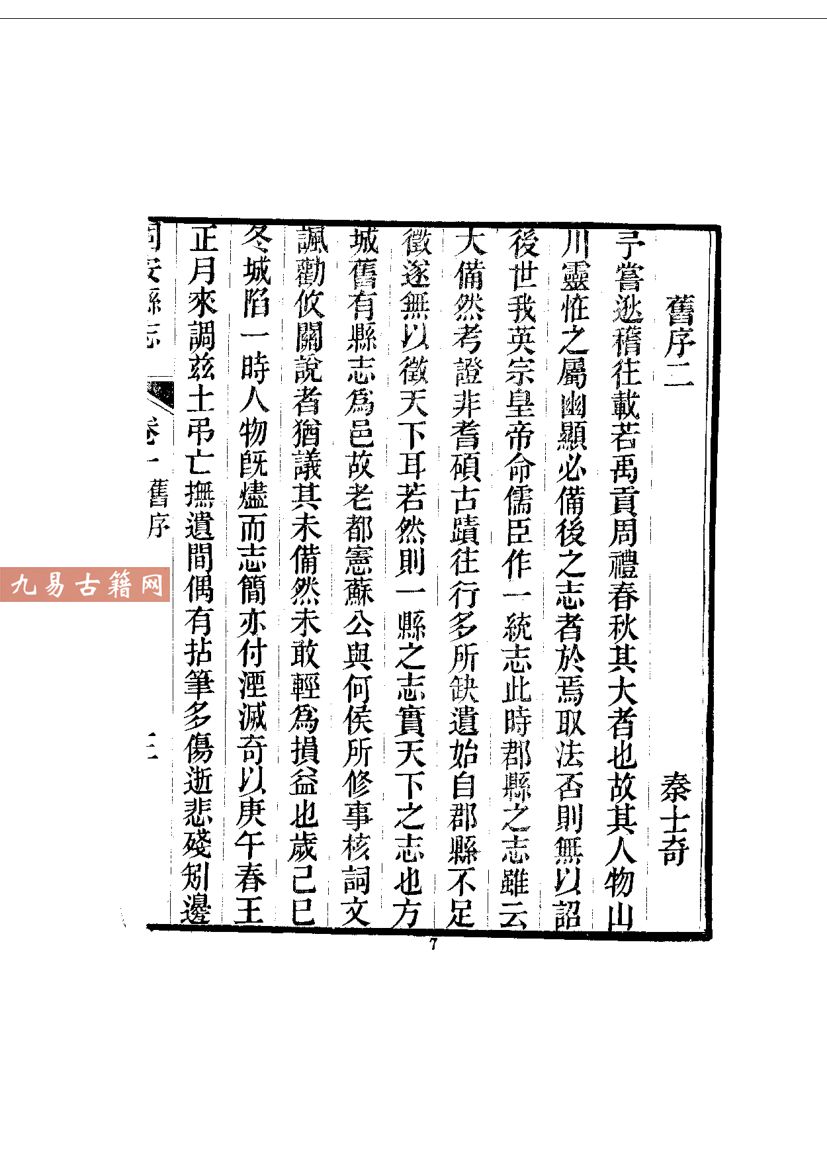 舊序二
秦士奇
予嘗逖稽往載若禹貢周禮春秋其大者也故其人物山
川靈恠之屬幽顯必備後之志者於焉取法否則無以詔
後世我英宗皇帝命儒臣作一統志此時郡縣之志雖云
大備然考證非耆碩古蹟往行多所缺遺始自郡縣不足
徵遂無以徵天下耳若然則一縣之志實天下之志也方
城舊有縣志爲邑故老都憲蘇公與何侯所修事核詞文
諷勸攸關說者猶議其未備然未敢輕爲損益也歲己巳
冬城陷一時人物旣燼而志簡亦付湮滅奇以庚午春王
正月來調兹土弔亡撫遺間偶有拈筆多傷逝悲殘矧邊
固安縣志
卷一
舊序
三
7
九易古籍网